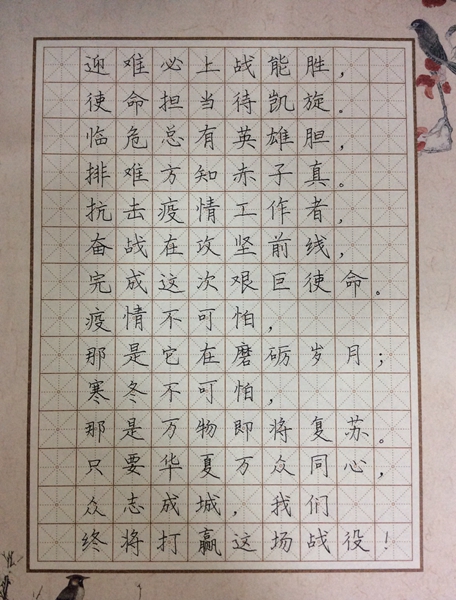 迎难必上战能胜，
使命担当待凯旋。
临危总有英雄胆，
排难方知赤子真。
抗击疫情工作者，
奋战在攻坚前线，
完成这次艰巨使命。
疫情不可怕，
那是它在磨砺岁月；
寒冬不可怕，
那是万物即将复苏。
只要华夏万众同心，
众志成城，我们
终将打赢这场战役！